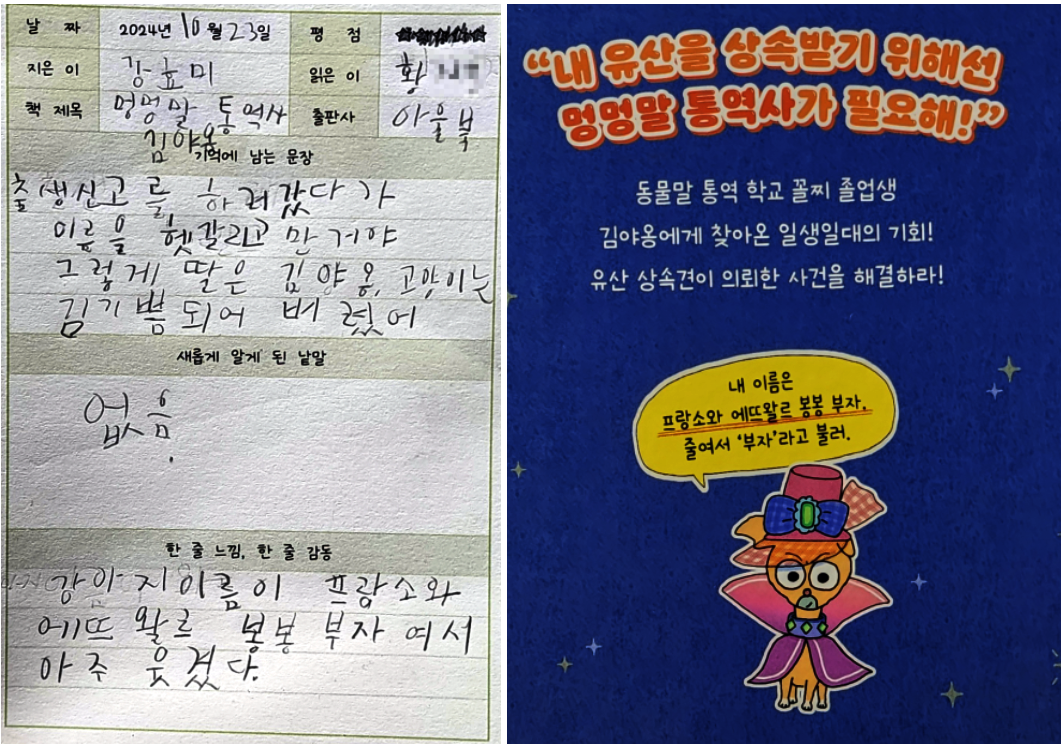 날 짜 2024년 10월 23일 평 점
지은 이 강효미 읽은 이 황
책 제목 멍멍말 통역사 출판사 아울북
김야옹
기억에 남는 문장
출생신고를 하러갔다가
이름을 헷갈리고 만거야
그렇게, 딸은 김야옹, 고양이는
김기쁨되어 버렸어
새롭게 알게 된 낱말
없음.
한 줄 느낌, 한 줄 감동
강아지이름이 프랑소와
에뜨왈르 봉봉 부자여서
아주 웃겼다.
“내 유산을 상속받기 위해선
멍멍말 통역사가 필요해!”
동물말 통역 학교 꼴찌 졸업생
김야옹에게 찾아온 일생일대의 기회!
유산 상속견이 의뢰한 사건을 해결하라!
내 이름은
프랑소와 에뜨왈르 봉봉 부자.
줄여서 ‘부자’라고 불러.